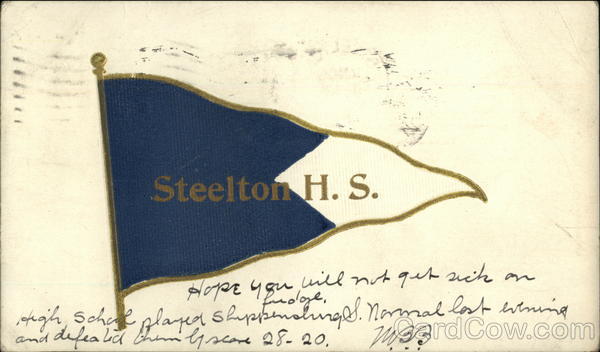 Steelton H. S.
Hope you will not get sick on
fudge.
High School played Shippensburg S. Normal last evening
and defeated them by score 28-20. MBB
CardCow.com